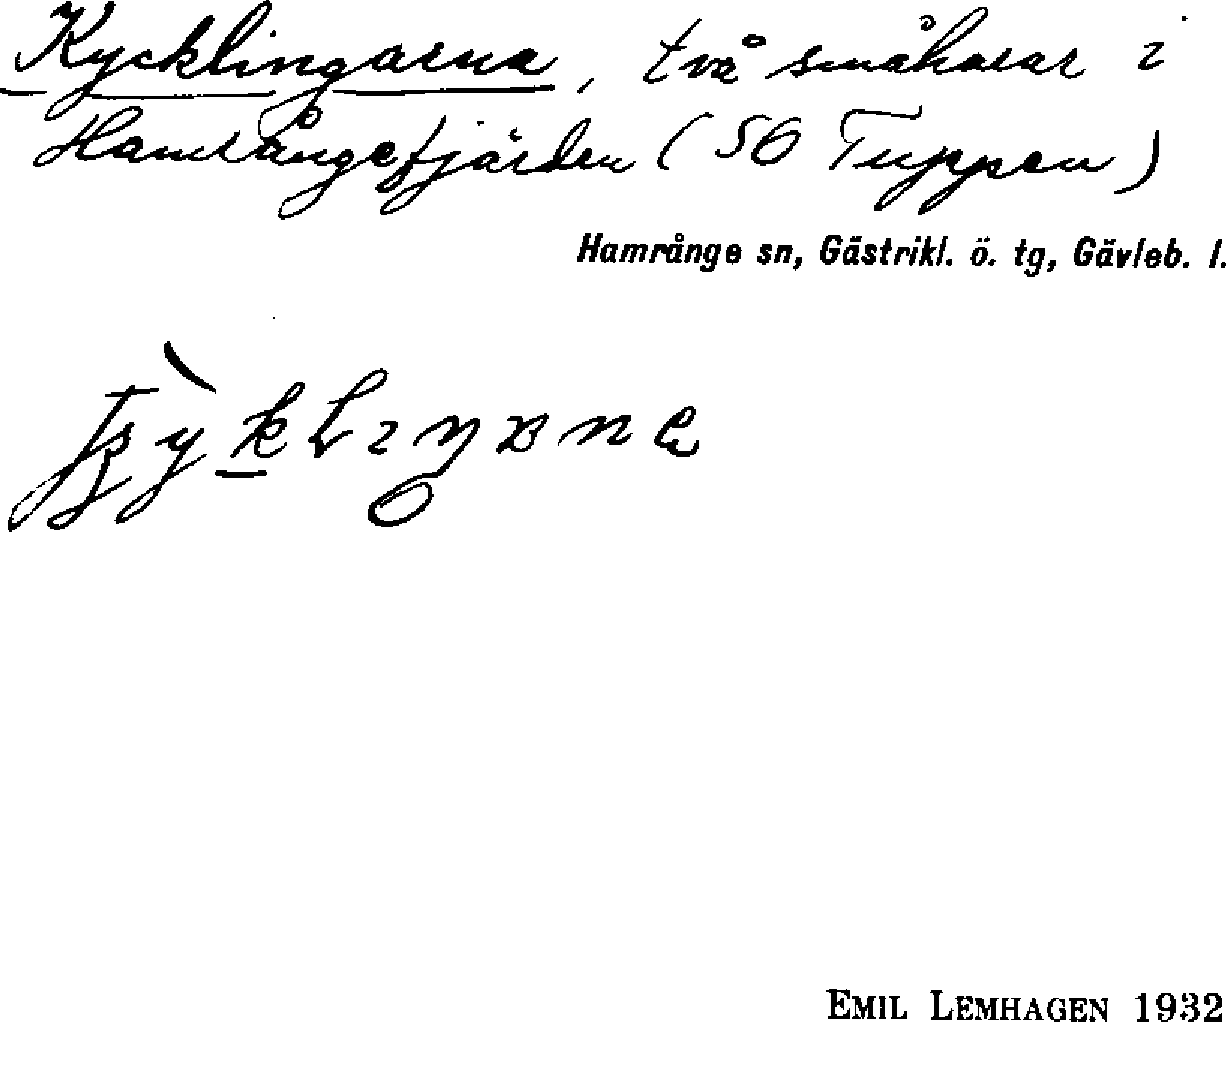 Kycklingarna, två småharar i
Hamrångefjärden (SO Tuppen)
Hamrånge sn, Gästrikl. ö. tg, Gävleb. l.
EMIL LEMHAGEN 1932